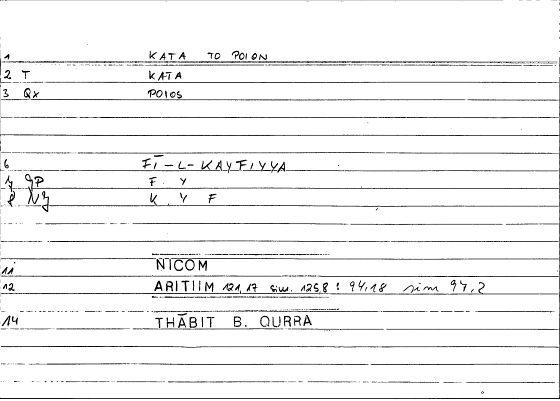 1 KATA TO POION
2 T KATA
3 Qx POIOS
6 FĪ-L-KAYFIYYA
7 JP F . Y
8 NJ K . Y F
11 NICOM
12 ARITIIM 121,17 sim. 125,8 : 94,18 sim 94,2
14 THĀBIT B. QURRA